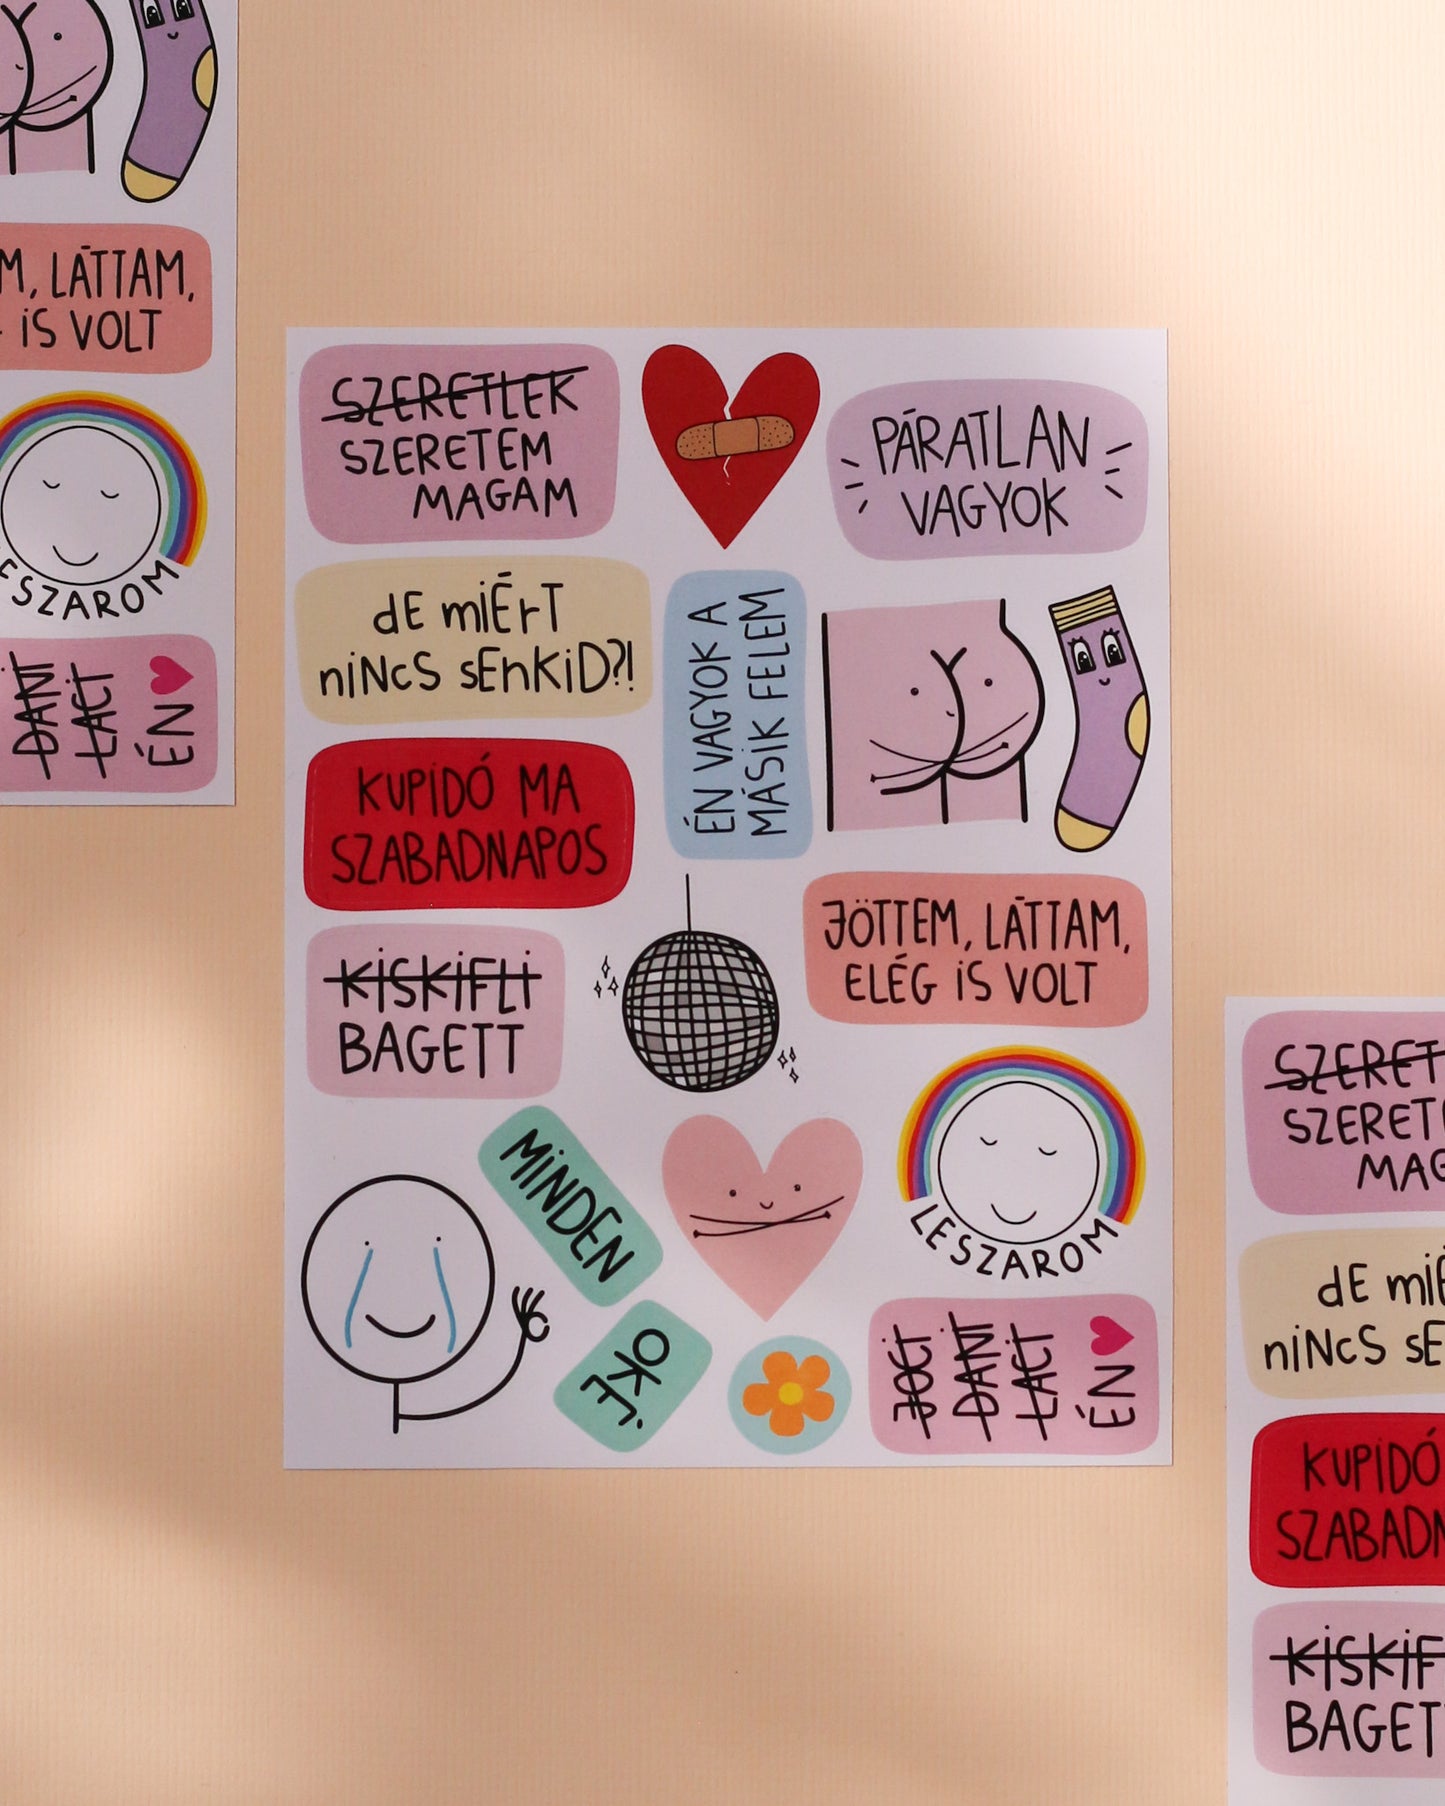 M, LÁTTAM,
IS VOLT
SZAROM
DANI
LACI
ÉN
SZERETLEK
SZERETEM
MAGAM
PÁRATLAN
VAGYOK
dE miÉrT
niNcS sEnKiD?!
ÉN VAGYOK A
MÁSIK FELEM
KUPIDÓ MA
SZABADNAPOS
JÖTTEM, LÁTTAM,
ELÉG IS VOLT
KISKIFLI
BAGETT
MINDEN
OKÉ.
LESZAROM
JOCI
DANI
LACI
ÉN
SZERET
SZERET
MAG
dE mi
niNcS sE
KUPIDÓ
SZABADN
KISKIF
BAGET